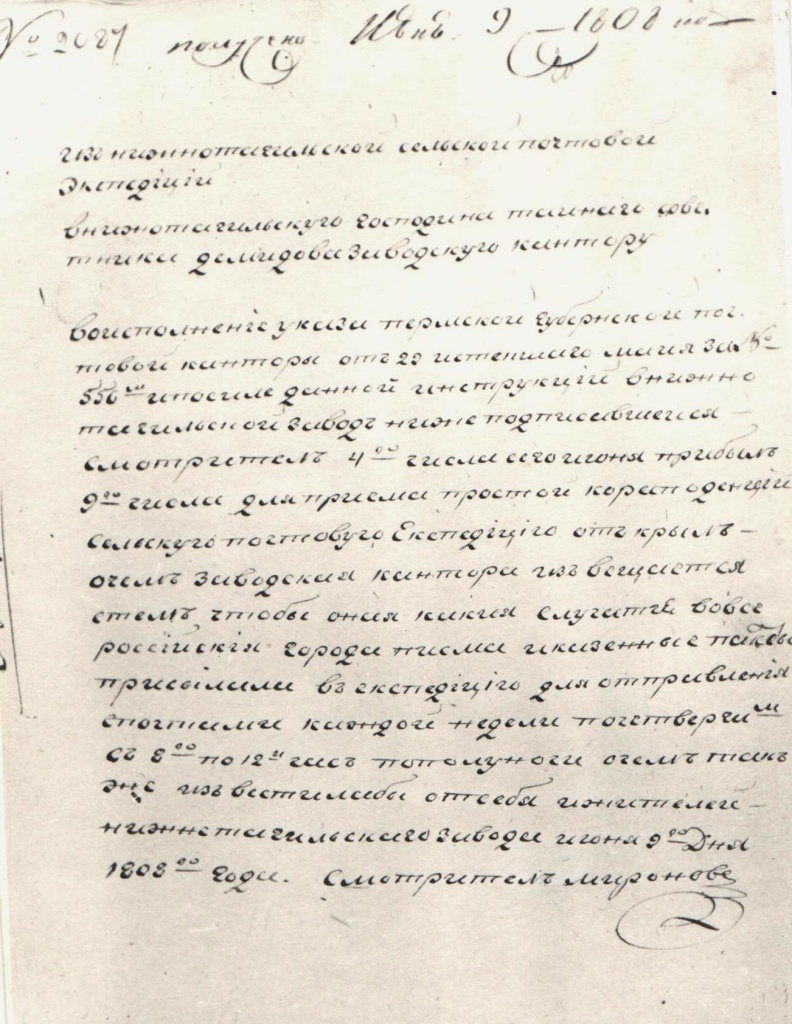 № 2087 получено Июнь 9 1808 го
изъ нижнотагильской сельской почтовой
экспедіціи
внижнотагильскую господина тайнаго сове.
тника демидова заводскую кантору
воисполненіе указа пермской губернской поч.
товой канторы отъ 29 истекшаго маия за №
556м ипосиле данной инструкціи внижно
тагильской заводъ нижеподписавшейся –
смотритель 4го числа сего июня прибылъ
9го числа для приема простой коресподенціи
сельскую почтовую Експедіцію открылъ –
очемъ заводская кантора извещается
стемъ чтобы оная какия случатся вовсе
российскія города писма иказенные пакеты
присылала въ експедіцію для отправления
спочтами каждой недели почетвергамъ
съ 8го по 12й часъ пополуночи очемъ такъ
же известилабы отсебя ижителей –
нижнетагильскаго завода июня 9го Дня
1808го года. Смотритель мироновъ